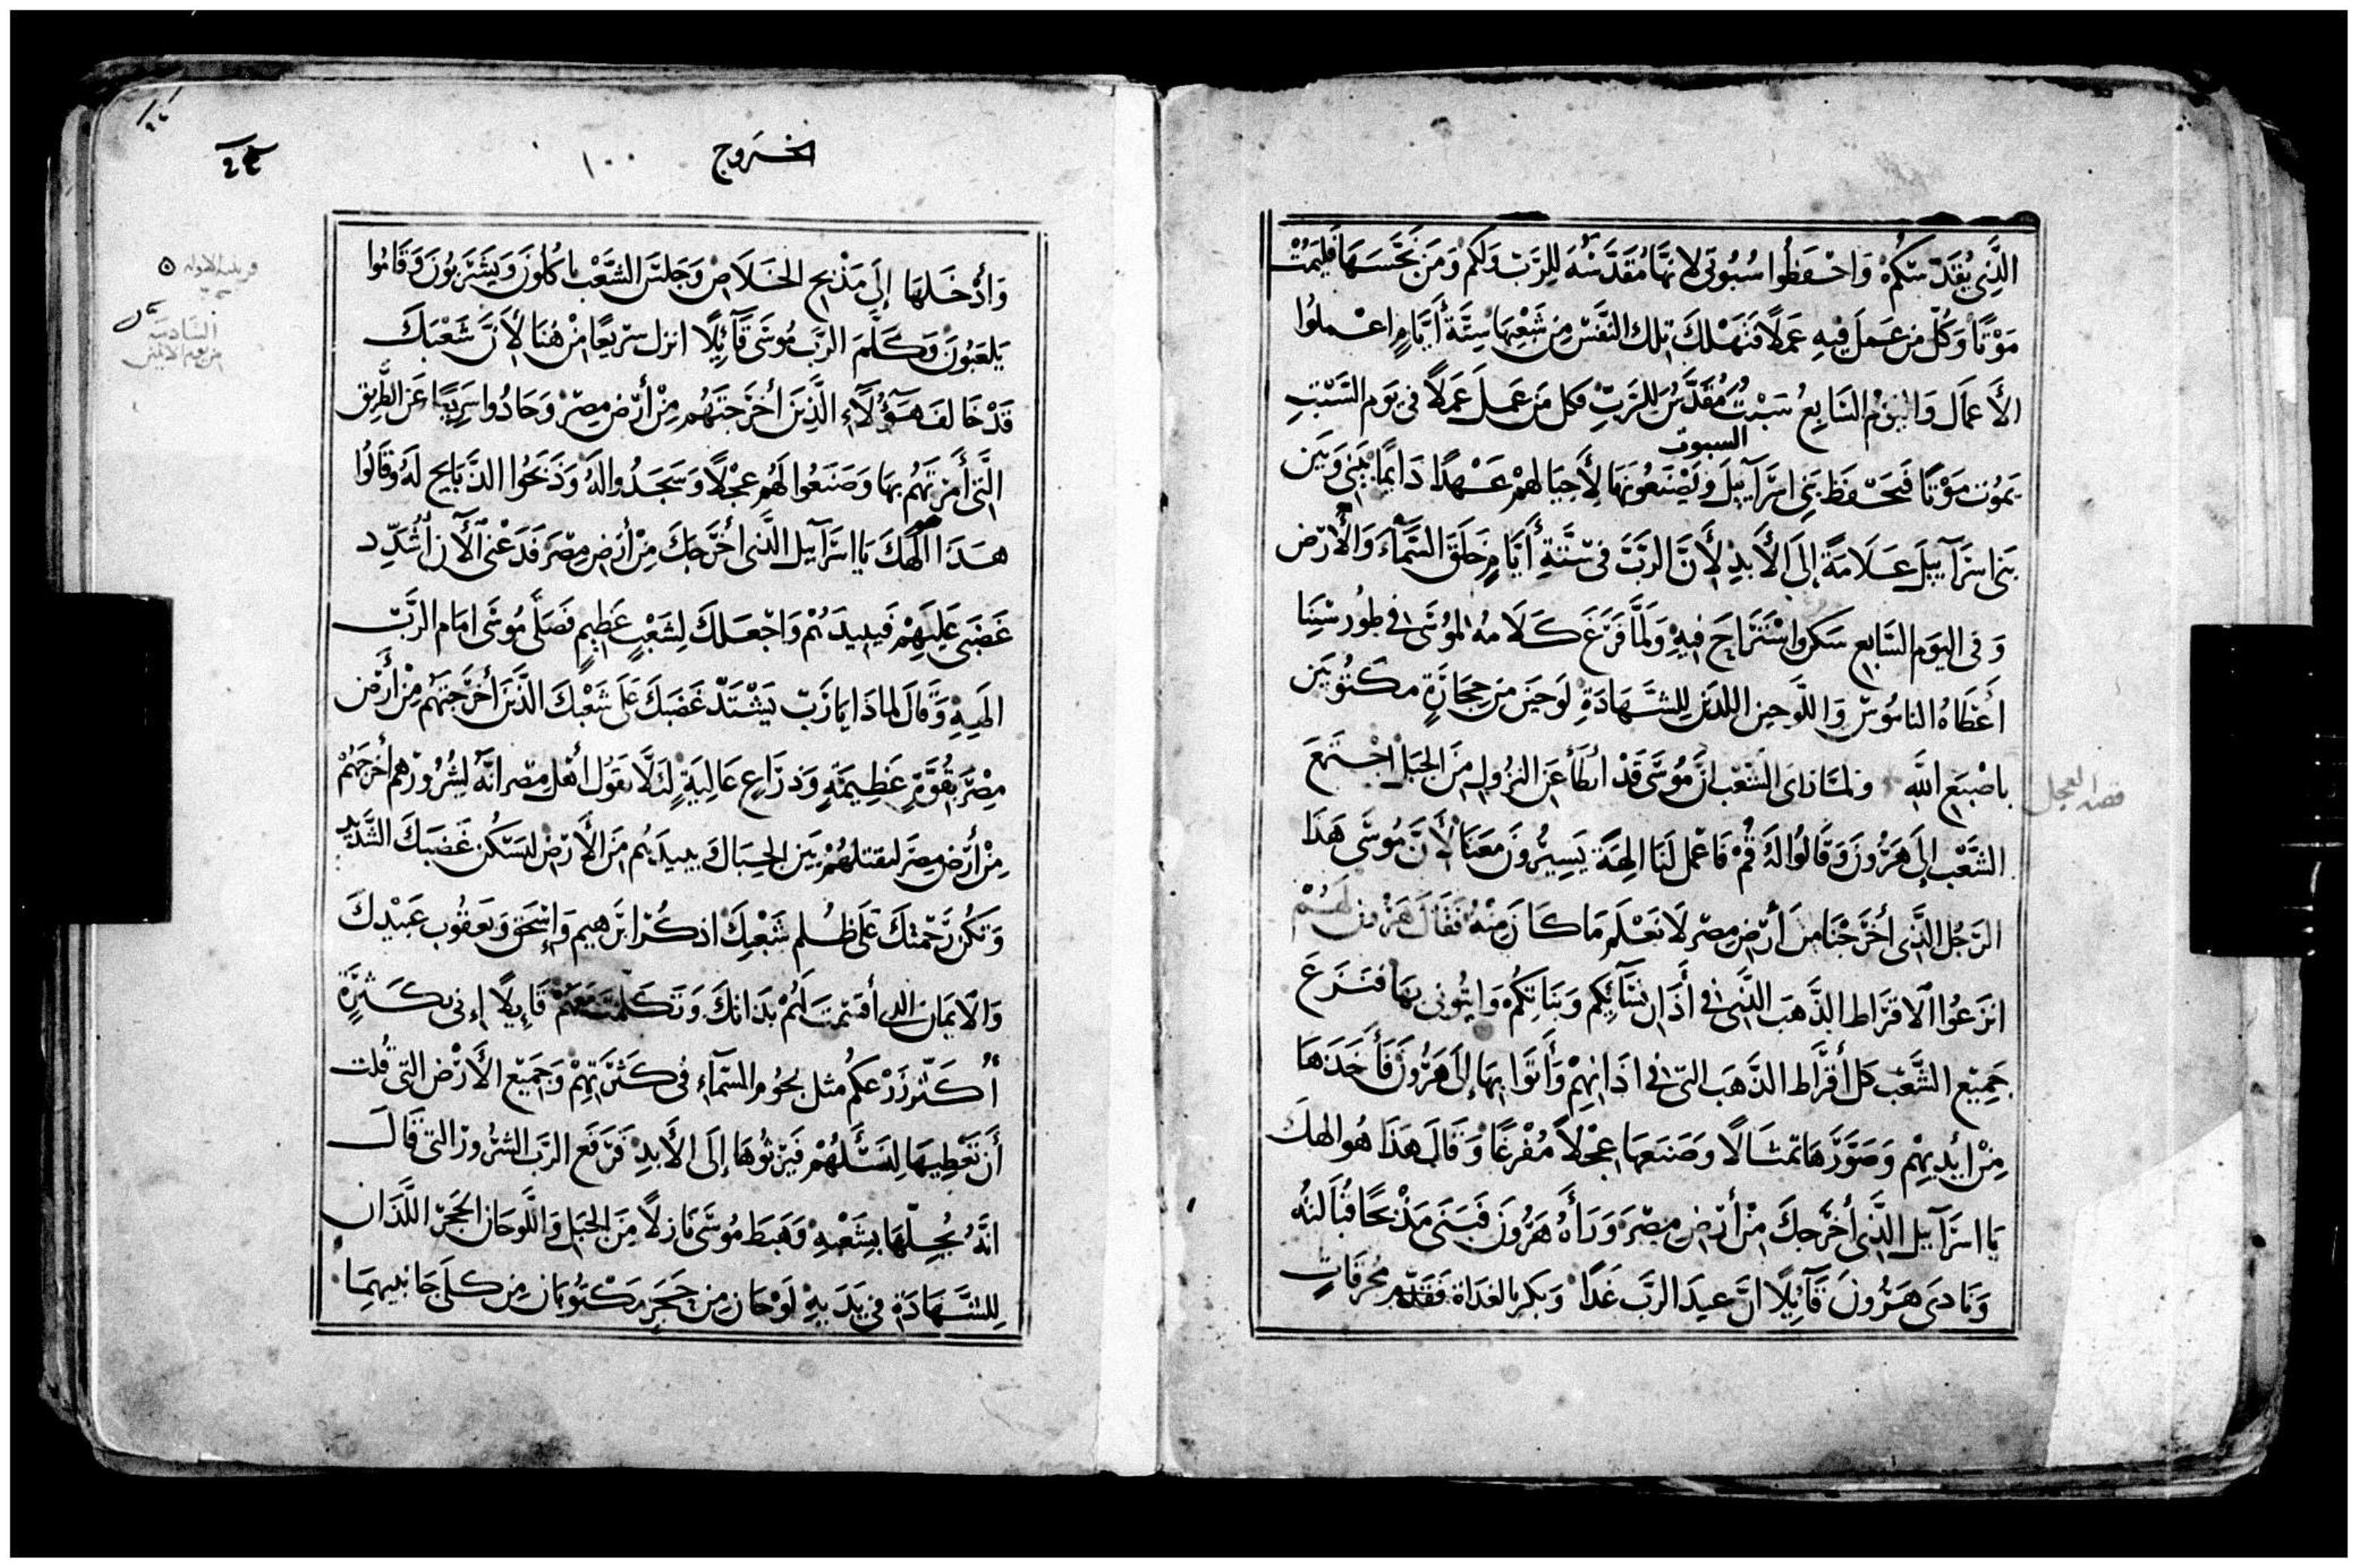 الَّذِي يُقَدِّسَكُمْ وَاحْفَظُوا سُبُوتِي لِانَّهَا مُقَدَّسَةُ لِلرَّبِّ وَلَكُمْ وَمَن نَجَّسَهَا فَلِيَمُتْ
مَوْتًا وَكُلّ مِن عَمِلَ فِيهِ عَمَلًا فَتَهْلَكَ تِلكَ النَّفْسُ مِن شَعْبِهَا سِتَّةُ أَيَّامٍ اعْمَلُوا
الأَعمَال وَاليَوْم السَابِعُ سَبْتٌ مُقَدَّسٌ لِلرَبِّ فَكل مَن عَمِلَ عَمَلًا فى يَوم السَّبْتِ
السبوت
يَمُوت مَوْتًا فَيَحْفَظ بَنِي اسْرَآئِيلَ وَيَصْنَعُونَهَا لِأَحبَالهِمْ عَهْدًا دَايمًا بَيْنِي وَبَين
بَنِى اسرَآئِيلَ عَلَامَةً إِلَى الأَبدِ لِأَنَّ الرَبَّ فى سِتَّةِ أَيَّامٍ خَلَقَ السَّمآءَ وَالأَرْض
وَفى اليَوم السَّابع سَكن وَاسْتَرَاحَ فِيهِ وَلَمَّا فَرَغَ كَلَامَهُ لِمُوْسَى فى طُور سْيَنِا
أَعْطَاهُ الناموُسْ وَاللَّوحين اللذَين لِلشَّهَادَةِ لَوحَين مِن حِجَارَةٍ مَكتُوبَين
باصْبَع اللَّهِ وَلمَّا رَاى الشَعْب انَّ مُوسَى قَدْ أَبطَأَ عَن النزُول مِنَ الجَبَل اجْتَمَعَ
قصة العجل
الشَّعْب إِلَى هَرُونَ وَقَالُوا لَهُ قُمْ فَاعْمل لَنَا الِهَة يَسِيرُونَ مَعَنَا لأَنَّ مُوسَى هَذَا
الرَجُل الَّذِى أَخرَجْنَا مِن أَرْضِ مِصْرَ لَا نَعْلَم مَا كَانَ مِنْهُ فَقَالَ هَرُون لَهُمْ
انزَعُوا الَاقرَاط الذَّهَب الَّذِي فى أَذَان نسَآئِكُم وَبَنَاتِكُم وَايتُونى بِهَا فَنَزَعَ
جَمِيْع الشَّعْب كَل أَقرَاط الذَّهَب التى فى اذَانِهِمْ وَأَتَوا بِهَا إِلَى هَرُونَ فَأَخَذَهَا
مِنْ أَيْدِيهِمْ وَصَوَّرَهَا تمثَالًا وَصَنَعَهَا عِجْلًا مُفْرَغًا وَقَالَ هَذَا هُو الهك
يَا اسرَآئِيل الَّذِى أَخرَجكَ مِنْ أَرْضِ مِصْرَ وَرَأَهُ هَرُونَ فَبَنَى مَذْبَحًا قُبَالتهُ
وَنَادَى هَرُونَ قَآئِلًا انَّ عِيدَ الرَّب غَدًا وَبَكر بالغدَاة فَقَدَّمَ محرَقَاتٍ
الخروج
١٠٠
وَأَدْخَلهَا إِلَى مَذْبَح الخَلَاص وَجَلَسَ الشَّعْب يَاكُلُونَ وَيَشْرَبُونَ وَقَامُوا
يَلعَبُونَ وَكَلَّمَ الرَّب مُوسَى قَآئِلًا انزل سَرِيْعًا مِنْ هُنَا لأَنَّ شَعْبَكَ
السَادسة
قَدْ خَالَفَ هَؤُلَآءِ الَّذِينَ أَخرَجتَهُم مِنْ أَرْضِ مِصْرَ وَحَادُوا سَرِيعًا عَن الطَّرِيق
الَّتِى أَمَرْتَهُم بِهَا وَصَنَعُوا لَهُم عِجْلًا وَسَجَدُوا لَهُ وَذَبَحُوا الذَّبَايح لَهُ وَقَالُوا
هَذَا الَهكَ يَا اسرَآئِيل الَّذِى أَخْرَجكَ مِنْ أَرْضِ مِصْرَ فَدَعْنِي الآن أُشَدِّد
غَضَبي عَلَيهِمْ فَيبيدَهُمْ وَاجْعَلكَ لِشَعْبٍ عَظِيمٍ فَصَلَّى مُوْسَى امَام الرَّبّ
الَهِهِ وَقَالَ لمَاذَا يَا رَبّ يَشْتَدّ غَضَبكَ عَلَى شَعْبكَ الَّذِينَ أَخرَجتَهُم مِنْ أَرْض
مِصْرَ بقُوَّةٍ عَظِيمَةٍ وَذِرَاعٍ عَالِيَةٍ لِئلَّا يَقُول أَهْل مِصر انَّهُ لِشُرُورٍ هم أَخرَجَهُمْ
مِنْ أَرْضِ مِصرَ لِيقتلهُمْ بَيَن الجبَال وَيبيدَهُم مِنَ الأَرْضِ ليسَكن غَضَبكَ الشَّدِيد
وَتكُن رَحْمَتكَ عَلَى ظُلم شَعْبكَ اذكُر ابرَهِيم وَإِسْحَق وَيَعقُوب عَبيْدكَ
وَالَايمَان التى أَقسَمتَ لَهُمْ بذَاتكَ وَتكَلَّمْتَ مَعَهُمْ قَائِلًا إِنى بكَثرَةٍ
أُكَثّر زَرْعكُم مثل نجوُم السَمآءِ فى كَثرَتِهِمْ وَجَمِيْع الأَرْض التى قُلت
أَن تُعْطِيهَا لِنَسْلهُمْ فَيرْثُوهَا إِلَى الأَبدِ فَرَفَع الرَّب الشرُور التى قَالَ
انَّهُ يُحِلّهَا بِشَعْبِهِ وَهَبَطَ مُوسَى نَازلًا مِنَ الجَبَل وَاللَّوحَان الحَجَر اللَّذَان
لِلشَّهَادَةِ فى يَدَيهِ لَوْحَان مِن حَجَرٍ مَكْتُوبَان مِن كلَى جَانبيهِمَا